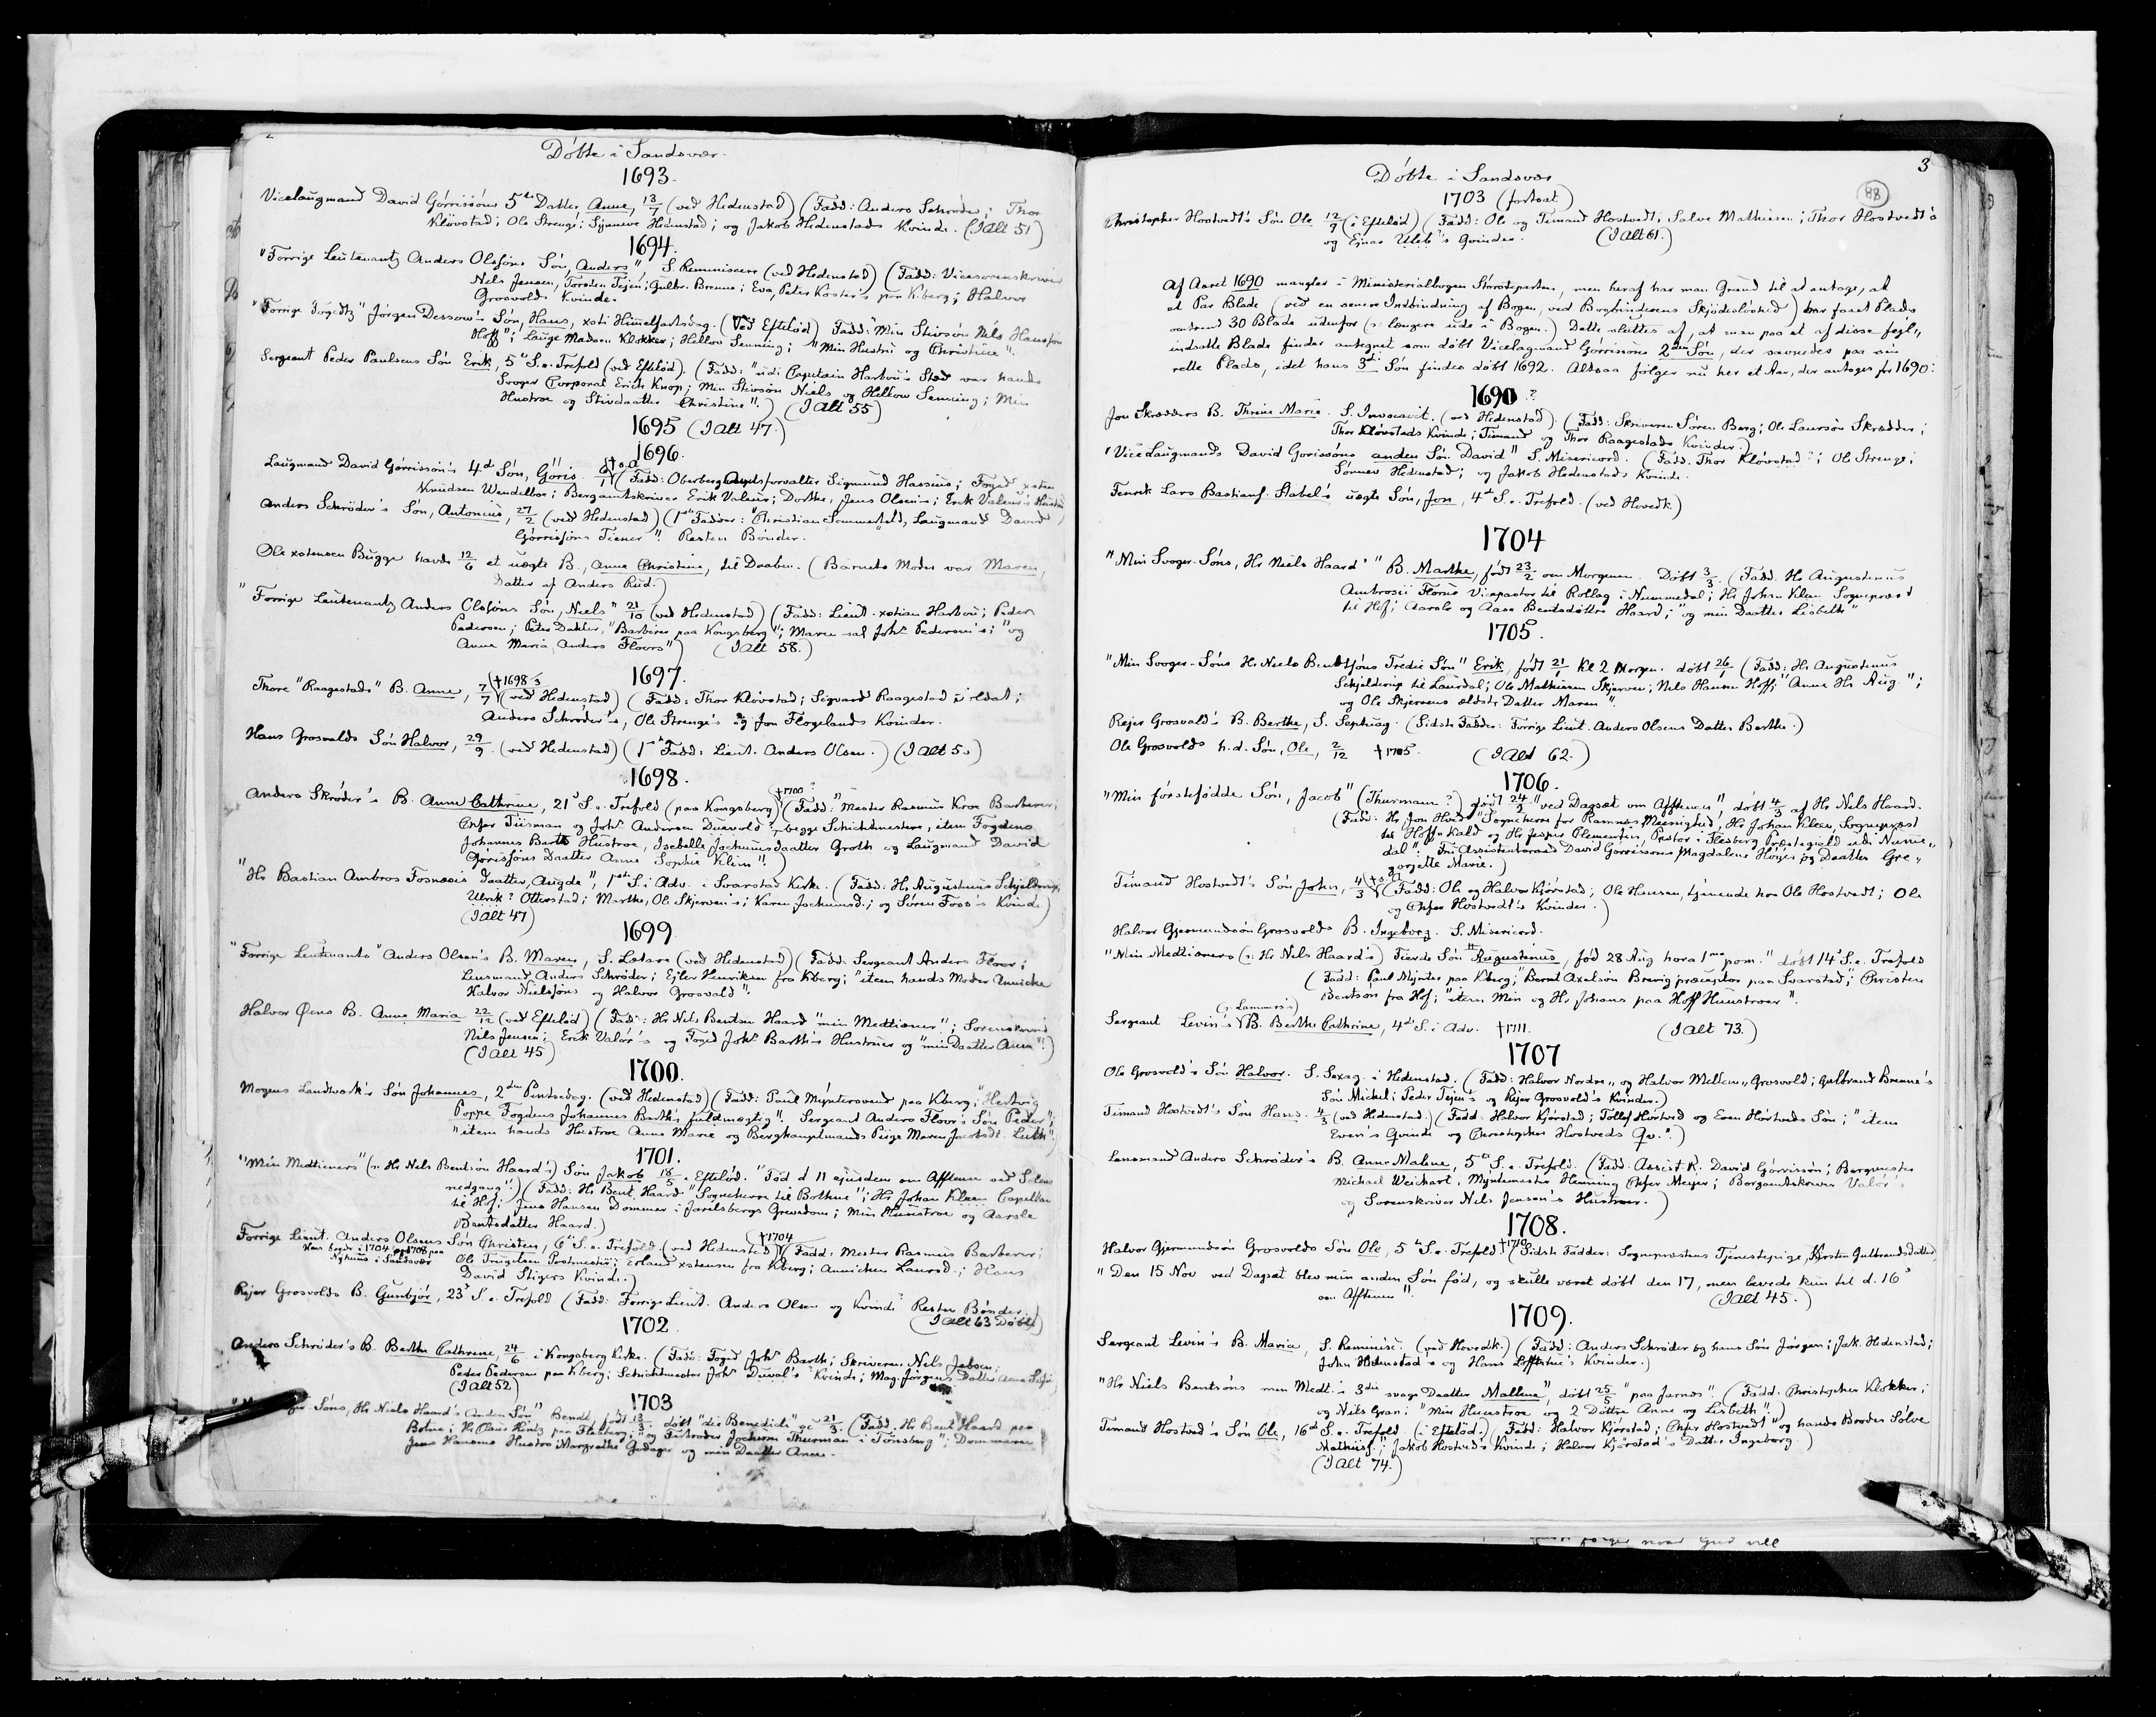 2
Døbte i Sandsvær.
1693.
Vicelaugmand David Gørrissöns 5te Datter Anne, 13/7 (ved Hedenstad) (Fadd: Anders Schrøder; Thor
Kløvstad; Ole Strenge; Synneve Hedenstad; og Jakob Hedenstads Kvinde. (I Alt 51)
1694.
"Forrige Leutenantz Anders Olssøns Søn, Anders", S. Reminiscere (ved Hedenstad) (Fadd: Vicesorenskriver
Nels Jensen, Torsten Tejen; Gulbr. Brenne; Eva, Peter Koster's paa Kberg; Halvor
Grosvolds Kvinde.
"Forrige Fogedtz" Jørgen Dessow's Søn, Hans, xsti Himelfartsdag. (Ved Eftelød) Fadd: "Min Stivsøn Nils Hanssøn
Hoff"; Lauge Madsen Klokker; Hellow Senning; "Min Hustru og Christine".
Sergeant Peder Paulsens Søn Erik, 5te S. e. Trefold (ved Efteløf). (Fadd: "udi Capitain Harbou's Sted var hands
Svoger Corporal Erich Knop; Min Stivsøn Niels og Hellow Senning; Min
Hustroe og Stivdaatter Christine".) (I Alt 55)
1695 (I Alt 47.)
1696.
Laugmand David Gørrissön's 4de Søn, Gøris 6/1 † s.A. (Fadd: Oberberg Amtsforvalter Sigmund Hassius; Foged xsten
Knudsen Wendelboe; Bergamtskriver Erik Valeur; Dorthe, Jens Olsen's; Erik Valeur's Hustru)
Anders Schröder's Søn, Antonius, 27/2 (ved Hedenstad) (1ste Fadder: "Christian Sommerfeld, Laugmand David
Gørrissøns Tiener". Resten Bönder.
Ole xstensen Bugge havde 12/6 et uægte B., Anne Christine, til Daaben. (Barnets Moder var Maren,
Datter af Anders Rud.)
"Forrige Leutenantz Anders Olssøns Søn, Niels" 21/10 (ved Hedenstad) (Fadd: Lieut. xstian Harbou; Peder
Pedersen; Peter Dakter, "Barberer paa Kongsberg"; Maren sal Johs Pedersen's; "og
Anna Maria, Anders Floors") (I Alt 58.)
1697.
Thore "Raagestads" B. Anne, 7/7 (†1698 3/3) (ved Hedenstad) (Fadd: Thor Kløvstad; Sigvard Raagestad
Anders Schrøder's, Ole Strenge's og Jon Flogelands Kvinder.
Hans Grosvolds Søn Halvor, 29/9 (ved Hedenstad) (1ste Fadd: Lieut. Anders Olsen.) (I Alt 5.)
1698.
Anders Skrøder's B. Anne Cathrine, 21de S. e. Trefold (paa Kongsberg) †1700? (Fadd: "Mester Rasmus Kroe Barberer;
Chfer Tiisman og Johs Andersen Duevold? begge Schichtmestere, item Fogdens
Johannes Barths Hustroe, Isabelle Jochumsdaatter Groth og Laugmand David
Gørrissøns Daatter Anne Sophie Klim".)
"Hr Bastian Ambros Fosnæsis daatter, Augde", 1ste S. i Adv. i Svarstad Kirke. (Fadd: Hr Augustinus Schjelderup;
Ulrik? Ollerstad; Marthe, Ole Skjerven's; Karen Jochumsd.; og Søren Foss's Kvinde)
(I Alt 47)
1699.
"Forrige Leutenants" Anders Olsen's B. Maren, S. Lætare (ved Hedenstad) (Fadd: Sergeant Anders Floor;
Lensmand Anders Schrøder; Ejler Henriksen fra Kberg; "item hands Moder Annicke
Halvor Nielssøns og Halvor Grosvold".
Halvor Øens B. Anne Maria 22/12 (ved Efteløf) (Fadd: Hr Nels Bentsen Haard "min Medtiener"; Sorenskriver
Nils Jensen; Erik Valör's og Foged Johs Barth's Hustruer og "min Daatter Anna"!)
(I Alt 45)
1700.
Mogens Landtvok's Søn Johannes, 2den Pentsedag. (ved Hedenstad) (Fadd: Paul Myntersvend paa Kberg; "Hertvig
Poppe Fogdens Johannes Barth's fuldmægtig". Sergeant Anders Floor's Søn Peder";
"item hands Hustroe Anne Marie og Berghauptmands Piige Maren Jacobsdt. Luth".)
1701.
"Min Medtieners" (: Hr Nels Bentsøn Haard's) Søn Jakob 18/5 i Efteløf. "Fød d 11 ejusdem om Afftenen ved Solens
nedgang".) (Fadd: Hr Bent Haard "Sogneherre til Bothne"; Hr Johan Kleen Capellan
til Hof; Jens Hansen Dommer i Jarlsbergs Grevedom; Min Hustroe og Aarsle
Bentsdatter Haard.)
Forrige Lieut. Anders Olsens Søn Christen, 6te S. e. Trefold. (ved Hedenstad) †1704 (Fadd: Mester Rasmus Barberer;
Han boede i 1704 og 1708 paa
Nyhuus i Sandsvær Ole Trugelsen Postmester; Erland xstensen fra Kberg; Annichen Laursd.; Hans
David Stigers Kvinde.)
Rejer Grosvolds B. Gunbjør, 23de S. e. Trefold (Fadd: Forrige Lieut. Anders Olsen og Kvinde Resten Bönder.)
(I Alt 63 Døbte)
1702.
Anders Schrøder's B. Berthe Cathrine, 24/6 i Kongsberg Kirke. (Fadd: Foged Johs Barth; Skriveren Nils Jebsen;
Peder Pedersen paa Kberg; Schichtmester Johs Duval's Kvinde; Mag. Jörgens Datter Anne Sofie)
(I Alt 52)
1703
Søns, Hr Niels Haard's Anden Søn" Bendt, født 13/3, døbt "die Benedicti" 21/3. (Fadd. Hr Bent Haard paa
Botne; Hr Claus Hintz paa Flesberg; "og Tutroder Jochum Thurman i Tønsberg"; Dommeren
Jens Hansens Hustru Margrethe Gedager og min Daatter Anne.
3
88
Døbte i Sandsvær
1703 (fortsat)
Christopher Hostvedt's Søn Ole 12/7 (i Efteløf) (Fadd: Ole og Timand Hostvedt; Salve Mathiesen; Thor Hostvedt's
og Ejnar Uleb's Qvinder. (I Alt 61.)
Af Aaret 1690 mangler i Ministerialbogen Størsteparten, men heraf har man Grund til at antage, at
et Par Blade (ved en senere Indbinding af Bogen, ved Bogbinderens Skjødesløshed) har faaet Plads
omtrend 30 Blade udenfor (: længere ude i Bogen.) Dette sluttes af, at man paa et af disse fejl„
indsatte Blade finder antegnet som døbt Vicelagmand Gørrisöns 2den Søn, der savnedes paa sin
rette Plads, idet hans 3die Søn findes døbt 1692. Altsaa følger nu her et Aar, der antages for 1690:
1690?
Jon Skrædders B. Threine Marie. S. Invocavit. (ved Hedenstad). (Fadd: Skriveren Søren Berg; Ole Laursøn Skrædder;
Thor Kløvstads Kvinde; Timand og Thor Raagestads Kvinder.)
"ViceLaugmands David Gorissöns anden Søn David" S. Misericord. (Fadd. Thor Kløvstad; Ole Strenge;
Sønnev Hedenstad; og Jakob Hedenstads Kvinde.
Fenrik Lars Bastians. Stabel's uægte Søn, Jon, 4de S. e. Trefold. (ved Hovedk.)
1704
"Min Svoger-Søns, Hr Niels Haard's" B. Marthe, født 23/2 om Morgenen. Døbt 3/3. (Fadd. Hr Augustinus
Ambrosii Flornæ Vicepastor til Rollag i Nummedal; Hr Johan Kleen Sogneprest
til Hof; Aarsle og Aase Bentsdøttre Haard; "og min Daatter Lisbeth"
1705.
"Min Svoger-Søns Hr Niels Bendtsöns Tredie Søn" Erik, født 21/1 Kl 2 Morgen. døbt 26/1 (Fadd: Hr Augustinus
Schjelderup til Laurdal; Ole Mathissen Skjerven; Nels Hansen Hoff; "Anne Hr Aug.";
og Ole Skjervens ældste Datter Maren".
Rejer Grosvold's B. Berthe, S. Septuag. (Sidste Fadder: Forrige Lieut. Anders Olsens Datter Berthe.)
Ole Grosvolds h.d. Søn, Ole, 2/12 †1705. (I Alt 62.)
1706.
"Min førstefødde Søn, Jacob" (Thurmann?) født 24/2 "ved Dagsæt om Afftenen", døbt 4/3 af Hr Nels Haard.
(Fadd: Hr Jon Hoid "Sogneherre for Ramnes Meenighed, Hr Johan Kleen, Sogneprest
til Hoffs Kald og Hr Jesper Clementin Pastor i Flesberg Præstegield udi Numme„
dal". Fru Assistentsraad David Gørrissøns Magdalene Höyer og Daatter Gre„
gorjette Marie.)
Timand Hostvedt's Søn John, 4/3 †s.A. (Fadd: Ole og Halvor Kjørstad; Ole Hansen, tjenende hos Ole Hostvedt; Ole
og Chfer Hostvedt's Kvinder.)
Halvor Gjermundsøn Grosvolds B. Ingeborg. S. Misericord.
"Min Medtieners (: Hr Nels Haard's) Fierde Søn "Augustinus, fød 28 Aug hora 1me pom." døbt 14de S. e. Trefold
(Fadd: Paul Mynter paa Kberg; "Bernt Axelsøn Brevig præceptor paa Svarstad"; Christen
Bentsøn fra Hof; "item Min og Hr Johans paa Hoff Huustroer".
Sergeant Levin's (: Lammers) B. Berthe Cathrine, 4de S. i Adv. †1711. (I Alt 73.)
1707
Ole Grosvold's Søn Halvor. S. Sexag. i Hedenstad. (Fadd: Halvor Nordre„ og Halvor Mellem„ Grosvold; Gulbrand Brenne's
Søn Michel; Peder Tejen's og Rejer Grosvold's Kvinder.)
Timand Hostvedt's Søn Hans. 4/3 (ved Hedenstad.) (Fadd: Halvor Kjørstad; Tollef Hostved og Even Hostveds Søn; "item
Even's Qvinde og Christopher Hostveds Qv.".)
Lensmand Anders Schrøder's B. Anne Malene, 5te S. e. Trefold. (Fadd. Assist R. David Gørrissön; Bergmester
Michael Weichart, Myntemester Henning Chfer Meyer; Bergamtskriver Valør's
og Sorenskriver Nils Jensen's Hustruer.)
1708.
Halvor Gjermundsøn Grosvolds Søn Ole, 5te S. e. Trefold †1710 (Sidste Fadder: Sogneprestens Tjenestepige, Kirstin Gulbrandsdatter)
"Den 15 Nov ved Dagsæt blev min anden Søn fød, og skulle været døbt den 17, men levede kun til d. 16de
om Afftenen". (I Alt 45.)
1709.
Sergeant Levin's B. Maria, S. Reminisc. (ved Hovedk.) (Fadd: Anders Schrøder og hans Søn Jørgen; Jak. Hedenstad;
John Hedenstad's og Hans Lofftstue's Kvinder.)
"Hr Niels Bentsøns min Medt.'s 3die svage Daatter Mallene", døbt 25/5 "paa Jarnæs". (Fadd. Christopher Klokker;
og Nels Gran; "Min Huustroe og 2 Døttre Anne og Lisbeth".)
Timand Hostved's Søn Ole, 16de S. e. Trefold. (i Efteløf.) (Fadd: Halvor Kjørstad; Chfer Hostvedt "og hands Broder Sølve
Mathiesf."; Jakob Hostved's Kvinde; Halvor Kjørstad's Datter Ingeborg.)
(I Alt 74.)